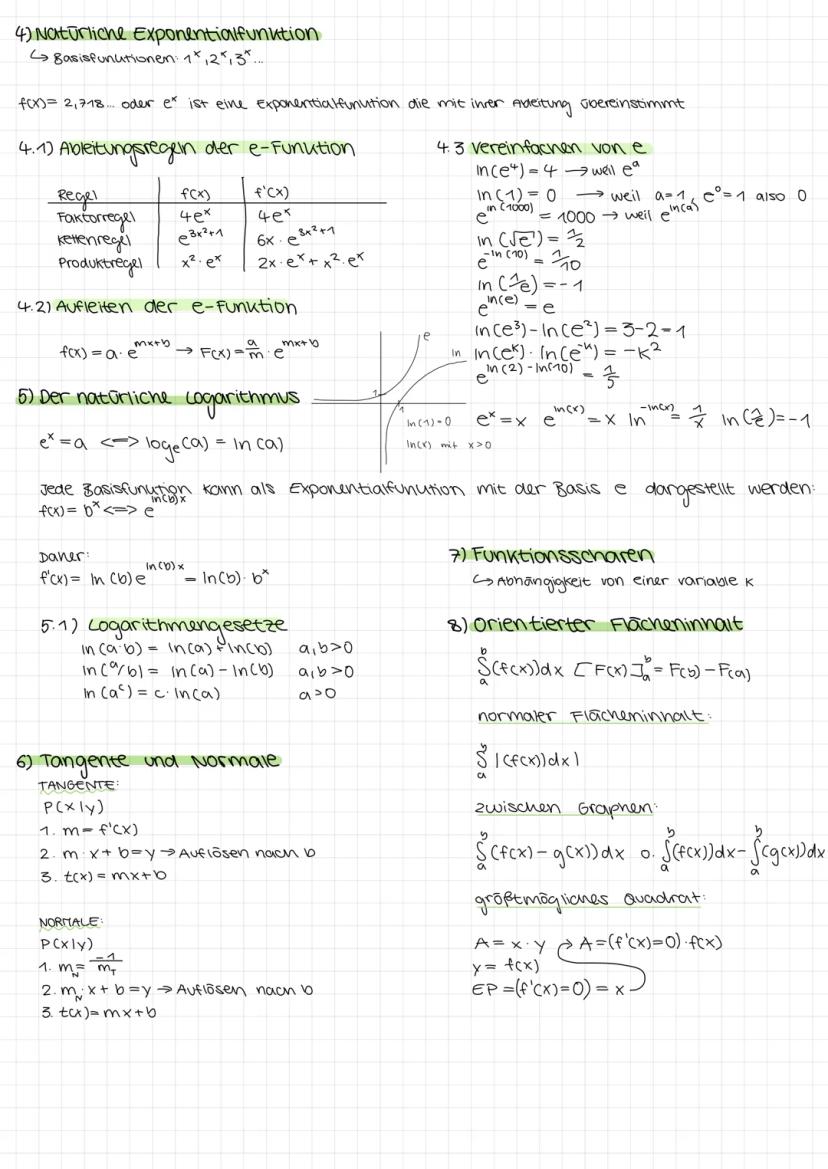 4) Natürliche Exponentialfunktion
↳ Basisfunktionen: 1ˣ, 2ˣ, 3ˣ...
f(x) = 2,718... oder eˣ ist eine Exponentialfunktion die mit ihrer Ableitung übereinstimmt
4.1) Ableitungsregeln der e-Funktion
Regel | f(x) | f'(x)
Faktorregel | 4eˣ | 4eˣ
Kettenregel | e^(3x²+1) | 6x · e^(3x²+1)
Produktregel | x² · eˣ | 2x · eˣ + x² · eˣ
4.2) Aufleiten der e-Funktion
f(x) = a · e^(mx+b) → F(x) = a/m · e^(mx+b)
4.3 Vereinfachen von e
ln(e⁴) = 4 → weil eᵃ
ln(1) = 0 → weil a=1, e⁰=1 also 0
e^(ln(1000)) = 1000 → weil e^(ln(a))
ln(√e) = 1/2
e^(-ln(10)) = 1/10
ln(1/e) = -1
e^(ln(e)) = e
ln(e³) - ln(e²) = 3-2 = 1
ln(eᵏ) · ln(e⁻ᵏ) = -k²
e^(ln(2) - ln(10)) = 1/5
eˣ = x e^(ln(x)) = x ln^(-ln(x)) = 1/x ln(1/e) = -1
5) Der natürliche Logarithmus
eˣ = a <=> logₑ(a) = ln(a)
e
ln
1
1
ln(1) = 0
ln(x) mit x>0
Jede Basisfunktion kann als Exponentialfunktion mit der Basis e dargestellt werden:
f(x) = bˣ <=> e^(ln(b)x)
Daher:
f'(x) = ln(b) e^(ln(b)x) = ln(b) · bˣ
5.1) Logarithmengesetze
ln(a·b) = ln(a) + ln(b) a,b>0
ln(a/b) = ln(a) - ln(b) a,b>0
ln(aᶜ) = c · ln(a) a>0
6) Tangente und Normale
TANGENTE:
P(x|y)
1. m = f'(x)
2. m · x + b = y → Auflösen nach b
3. t(x) = mx+b
NORMALE:
P(x|y)
1. m_N = -1/m_T
2. m_N · x + b = y → Auflösen nach b
3. t(x) = mx+b
7) Funktionsscharen
↳ Abhängigkeit von einer variable k
8) Orientierter Flächeninhalt
∫ₐᵇ (f(x))dx [F(x)]ₐᵇ = F(b) - F(a)
normaler Flächeninhalt:
∫ₐᵇ |(f(x))dx|
zwischen Graphen:
∫ₐᵇ (f(x) - g(x))dx o. ∫ₐᵇ (f(x))dx - ∫ₐᵇ (g(x))dx
größtmögliches Quadrat:
A = x · y → A = (f'(x)=0) · f(x)
y = f(x)
EP = (f'(x)=0) = x